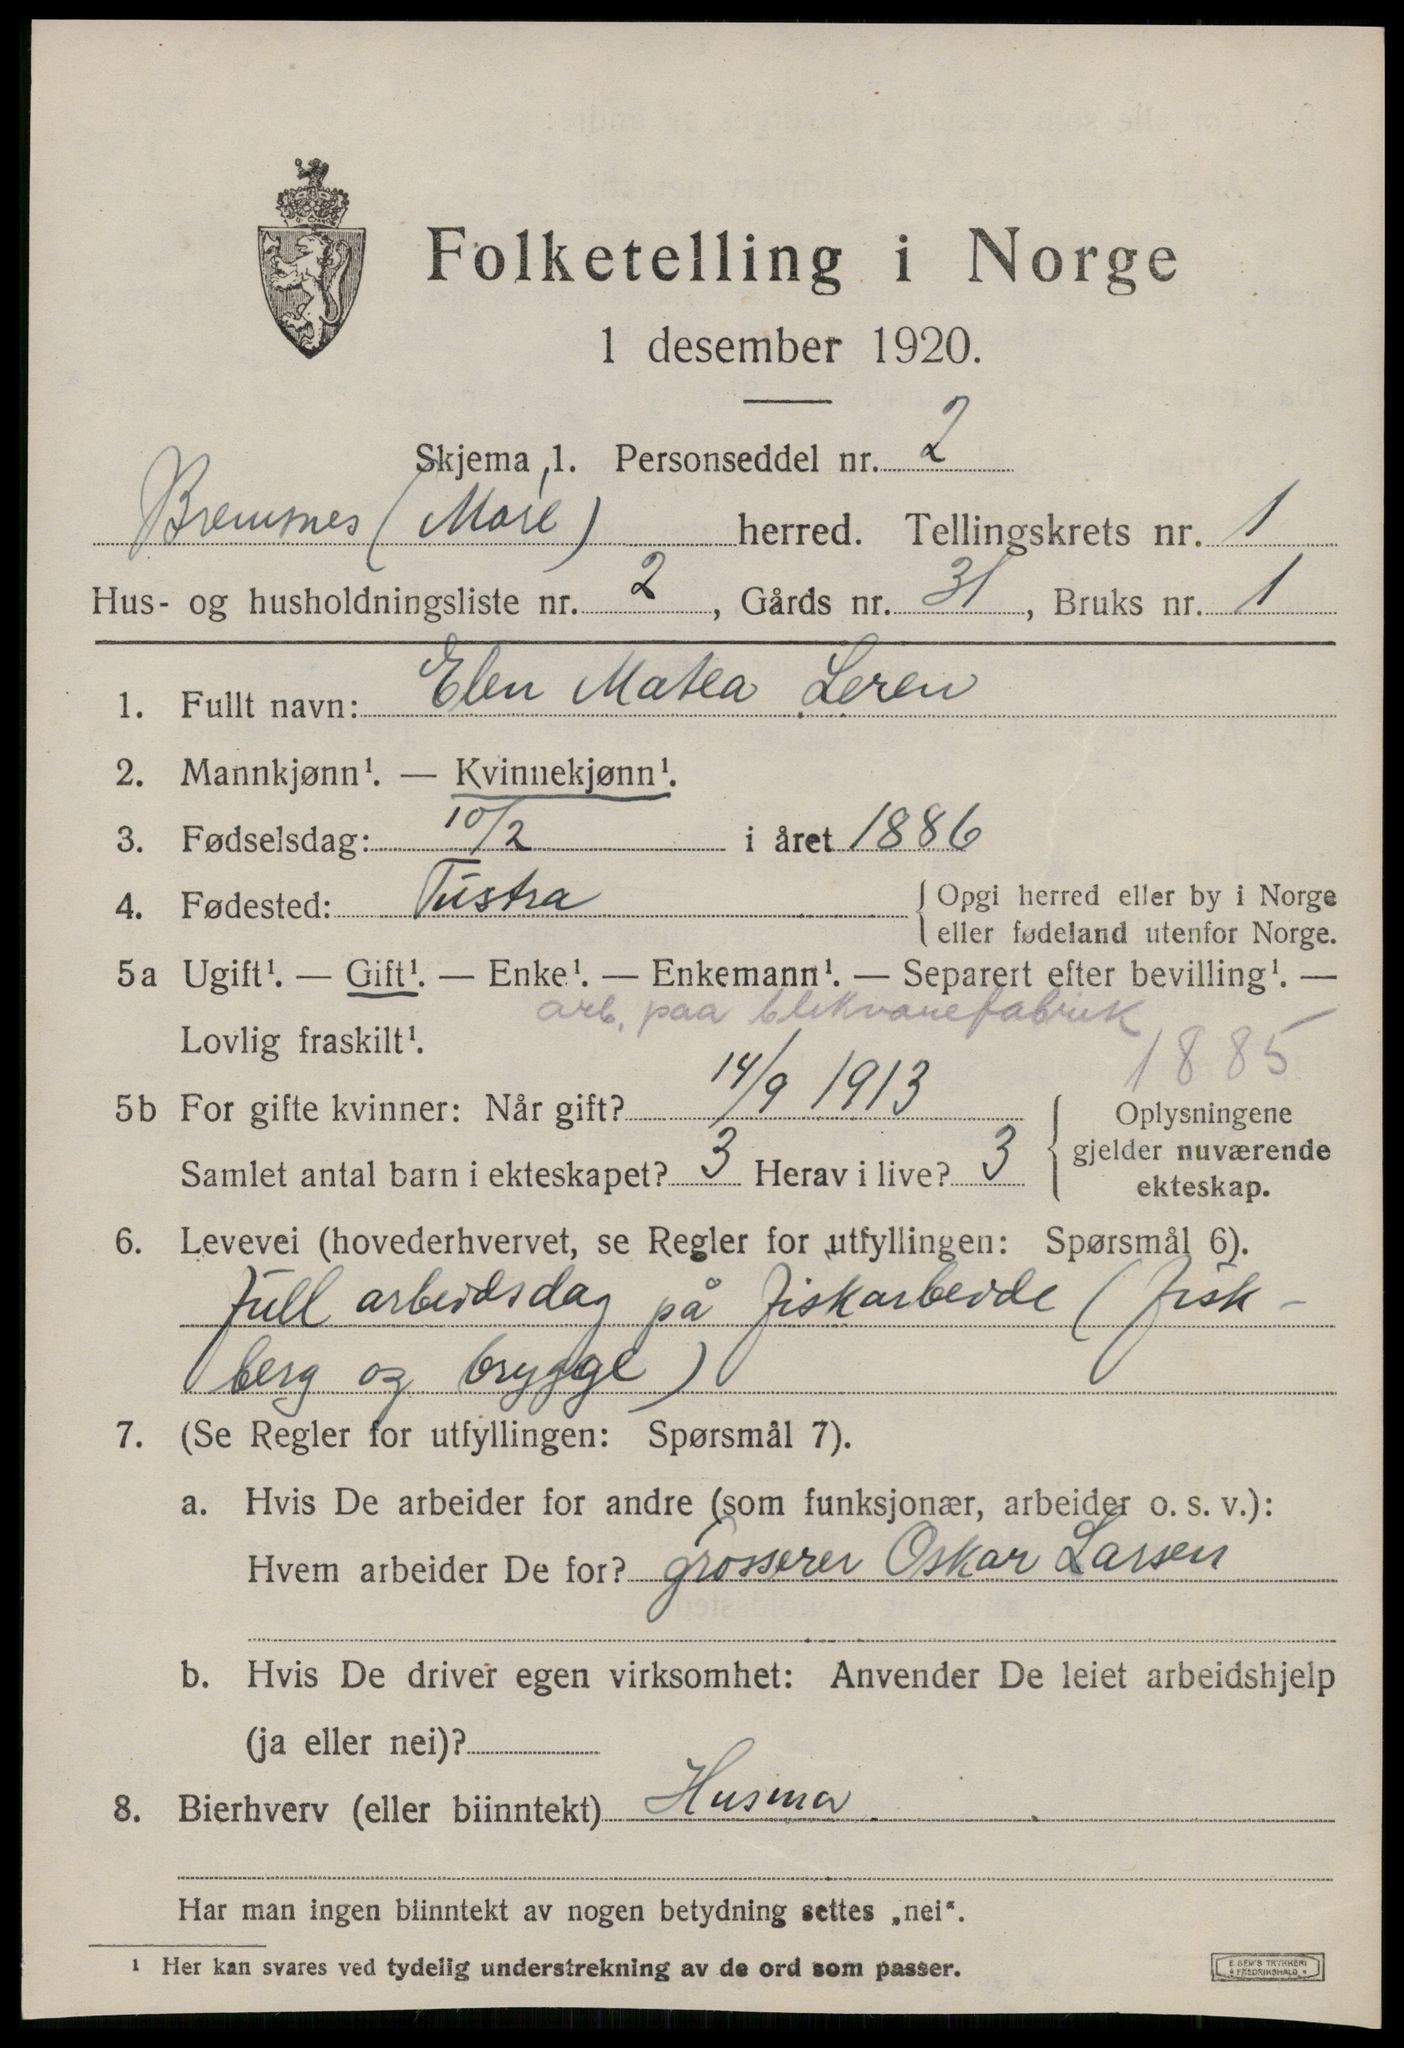 Folketelling i Norge
1 desember 1920.
Skjema 1. Personseddel nr. 2
Bremsnes (Møre) herred. Tellingskrets nr. 1
Hus- og husholdningsliste nr. 2, Gårds nr. 31, Bruks nr. 1
1. Fullt navn: Elen Matea Leren
2. Mannkjønn¹. — Kvinnekjønn¹.
3. Fødselsdag: 10/2 i året 1886
4. Fødested: Tustra { Opgi herred eller by i Norge
eller fødeland utenfor Norge.
5a Ugift¹. — Gift¹. — Enke¹. — Enkemann¹. — Separert efter bevilling¹. —
arb. paa blikvarefabrik
Lovlig fraskilt¹. 1885
5b For gifte kvinner: Når gift? 14/9 1913
Samlet antal barn i ekteskapet? 3 Herav i live? 3
{ Oplysningene
gjelder nuværende
ekteskap.
6. Levevei (hovederhvervet, se Regler for utfyllingen: Spørsmål 6).
full arbeidsdag på fiskarbeide (fisk-
berg og brygge)
7. (Se Regler for utfyllingen: Spørsmål 7).
a. Hvis De arbeider for andre (som funksjonær, arbeider o. s. v.):
Hvem arbeider De for? grosserer Oskar Larsen
b. Hvis De driver egen virksomhet: Anvender De leiet arbeidshjelp
(ja eller nei)?
8. Bierhverv (eller biinntekt) Husmor
Har man ingen biinntekt av nogen betydning settes „nei“.
¹ Her kan svares ved tydelig understrekning av de ord som passer.
E. SEM'S TRYKKERI
FREDRIKSHALD